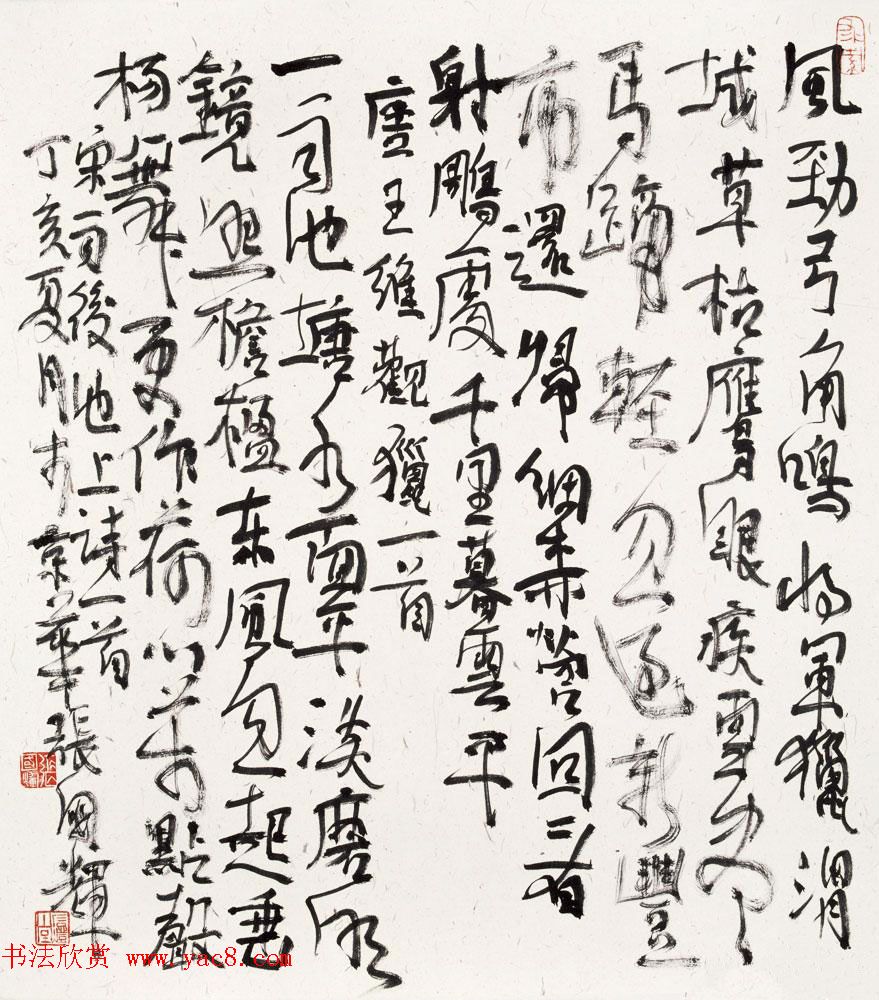 風勁弓角鳴將軍獵渭
城草枯鷹眼疾雪盡
馬蹄輕忽過新豐
市還歸細柳營回看
射鵰處千里暮雲平
唐王維觀獵一首
一雨池塘水面平淡磨明
鏡照檐楹東風忽起垂
楊舞更作荷心萬點聲
宋雨後池上詩一首
丁亥夏月於京華張國輝
书法欣赏 www.yac8.com